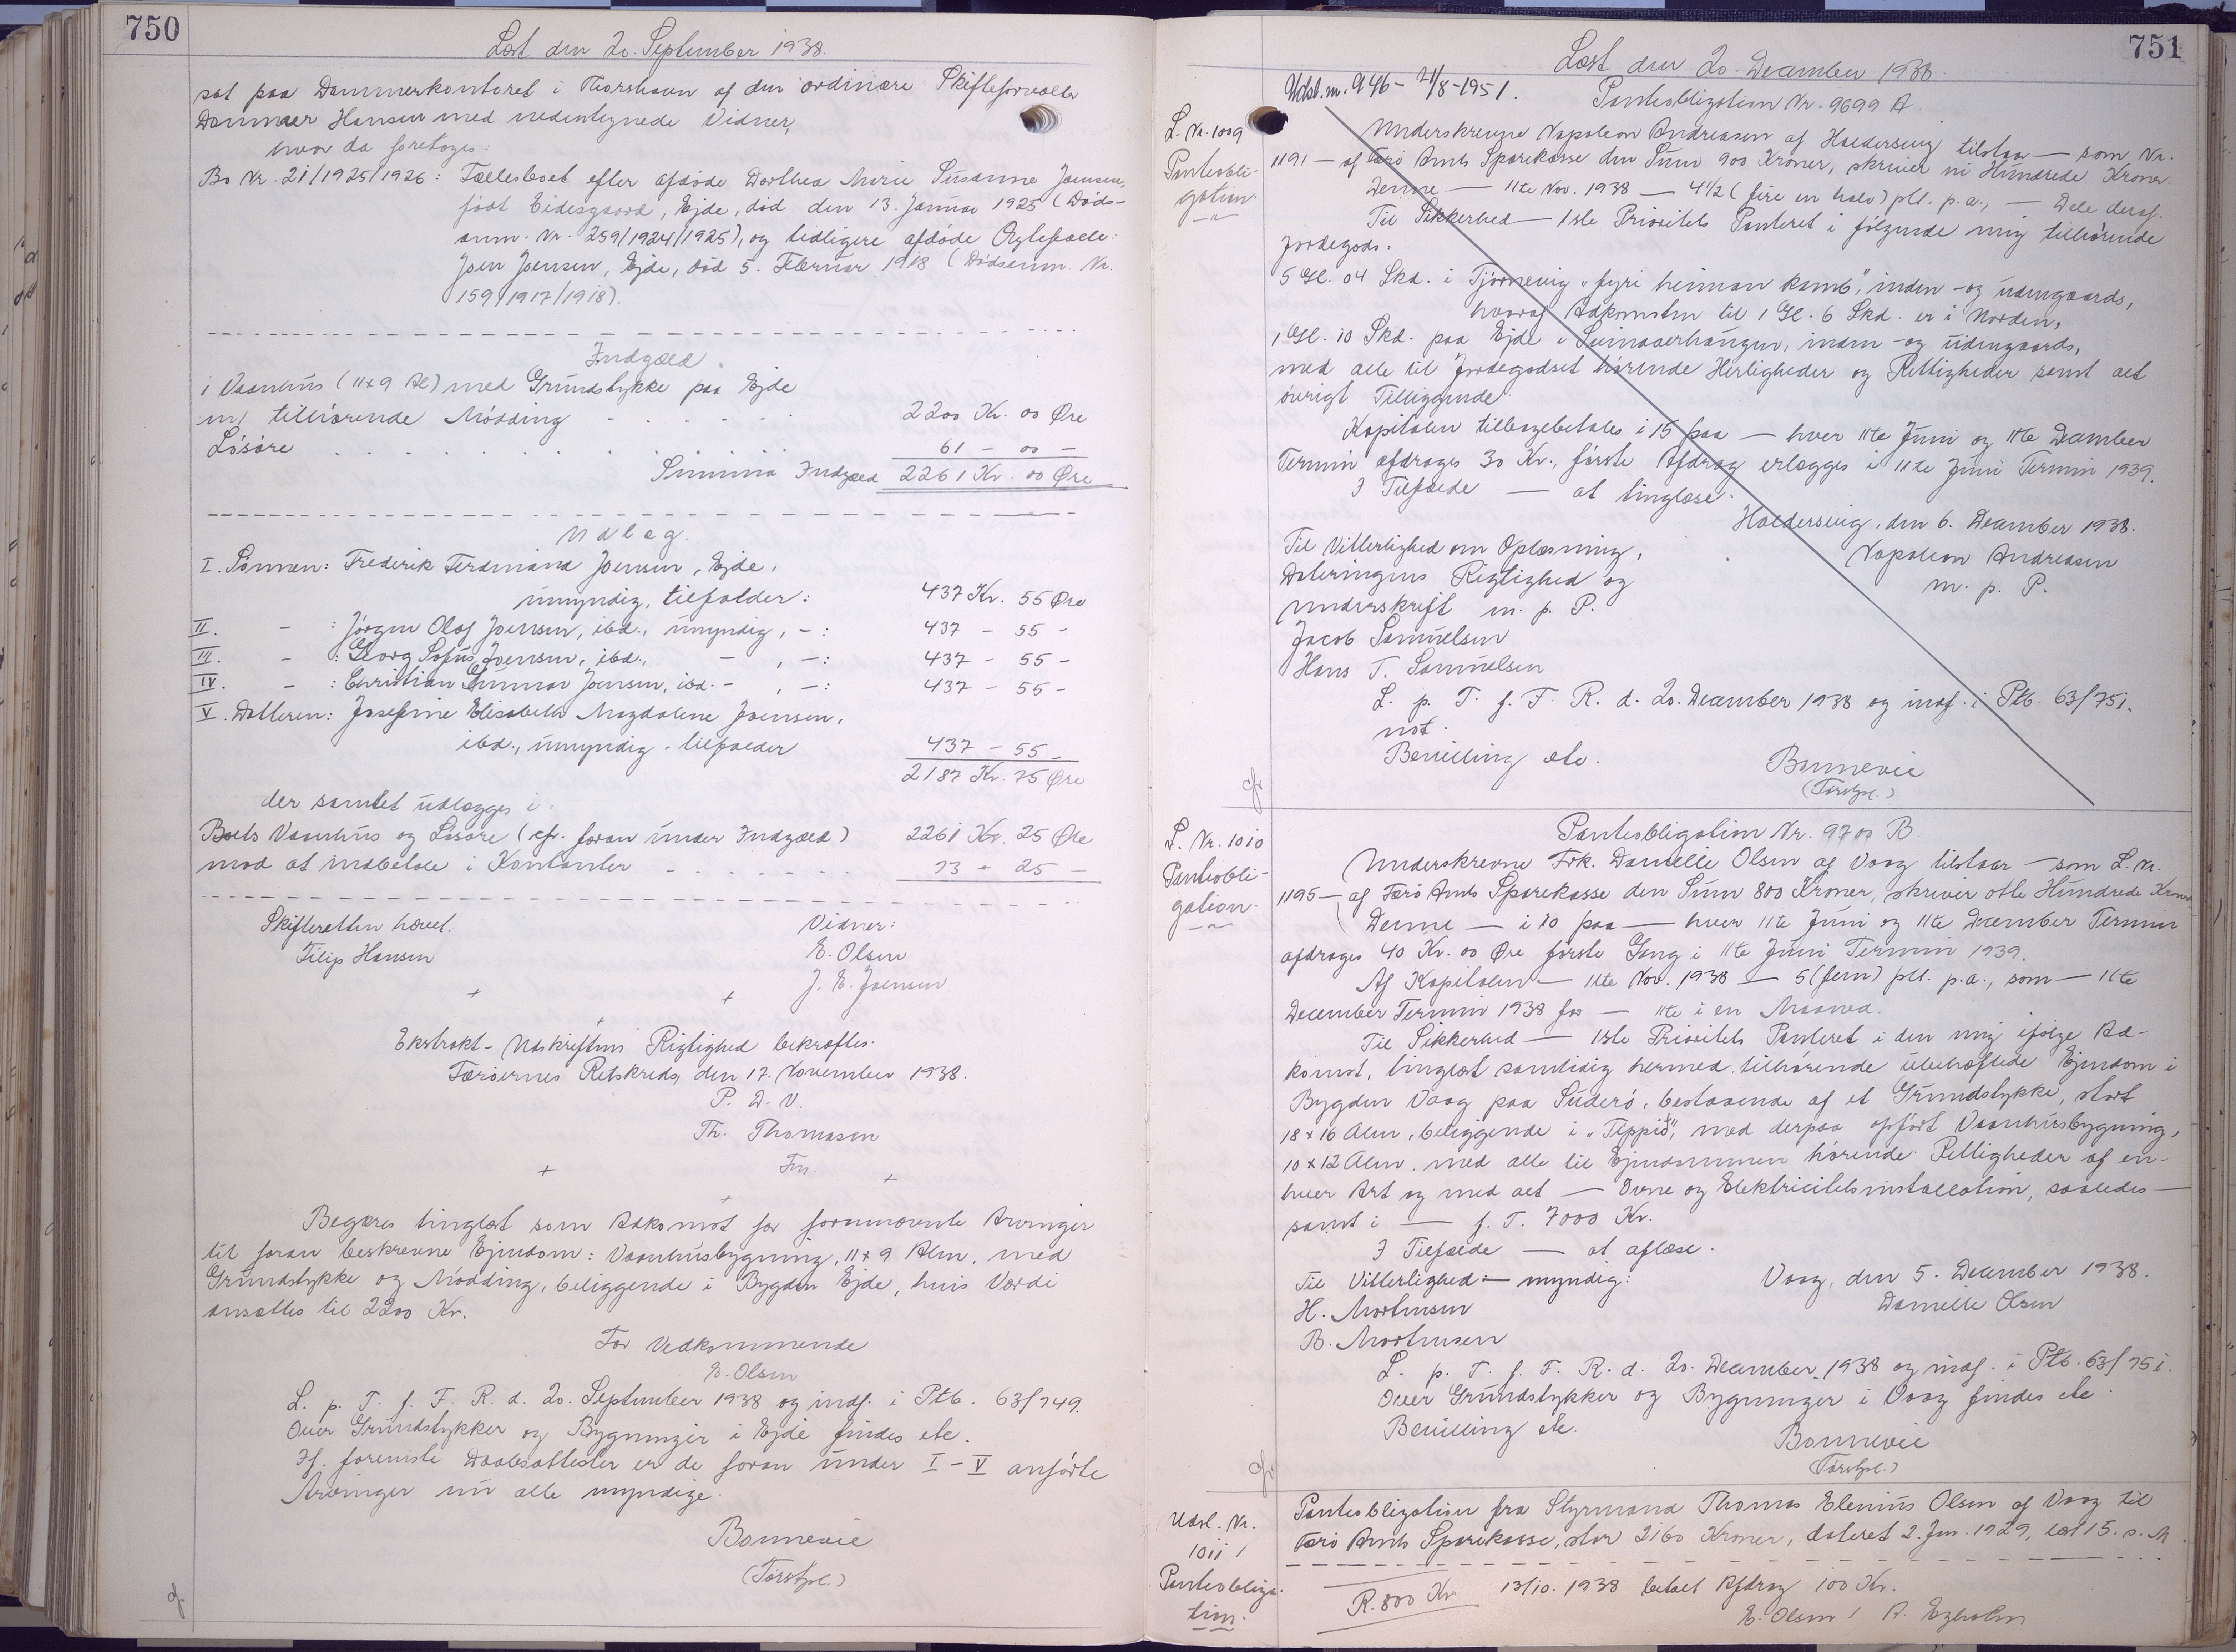 750
Læst den 20. September 1938.
sat paa Dommerkontoret i Thorshavn af den ordinære Skifteforvalter
Dommer Hansen med nedentegnede Vidner,
hvor da foretoges:
Bo Nr. 21/1925/1926: Fællesboet efter afdøde Dorthea Marie Susanne Joensen,
født Eidesgaard, Ejde, død den 13. Januar 1925 (Døds-
anm. Nr. 259/1924/1925), og tidligere afdøde Ægtefælle:
Joen Joensen, Ejde, død 5. Februar 1918 (Dødsanm. Nr.
159/1917/1918).
Indgæld
1 Vaanhus (11x9 Al) med Grundstykke paa Ejde
m/ tilhørende Mødding - - - - - 2200 Kr. 00 Øre
Løsøre . . . . . . . . 61 - 00 -
Summa Indgæld 2261 Kr. 00 Øre
Udlæg.
I. Sønnen: Frederik Ferdinand Joensen, Ejde,
umyndig, tilfalder: 437 Kr. 55 Øre
II. - : Jørgen Olaf Joensen, ibd., umyndig, -: 437 - 55 -
III. - : Georg Sofus Joensen, ibd., - , -: 437 - 55 -
IV. - : Christian Gunnar Joensen, ibd. - , -: 437 - 55 -
V. Datteren: Josefine Elisabeth Magdalene Joensen,
ibd., umyndig. tilfalder 437 - 55 -
2187 Kr. 75 Øre
der samlet udlægges i:
Boets Vaanhus og Løsøre (cfr. foran under Indgæld) 2261 Kr. 25 Øre
mod at indbetale i Kontanter - - - - - - - 73 - 25 -
Skifteretten hævet. Vidner:
Filip Hansen E. Olsen
J. E. Joensen
Ekstrakt-Udskriftens Rigtighed bekræftes.
Færøernes Retskreds, den 17. November 1938.
P. D. V.
Th. Thomasen
Fm.
Begæres tinglæst som Adkomst for fornævnte Arvinger
til foran beskrevne Ejendom: Vaanhusbygning, 11x9 Alen, med
Grundstykke og Mødding, beliggende i Bygden Ejde, hvis Værdi
ansættes til 2200 Kr.
For Vedkommende
E. Olsen
L. p. T. f. F. R. d. 20. September 1938 og indf. i Ptb. 63/749.
Over Grundstykker og Bygninger i Ejde findes etc.
If. foreviste Daabsattester er de foran under I - V anførte
Arvinger nu alle myndige.
Bonnevie
(Tørsfpl.)
751
Læst den 20. December 1938.
Udsl. nr. 946 - 21/8 - 1951.
Pantobligation Nr. 9699 A
L. Nr. 1009
Pantobli-
gation.
Underskrevne Napoleon Andreasen af Haldersvig tilstaar — som Nr.
1191 — af Færø Amts Sparekasse den Sum 900 Kroner, skriver ni Hundrede Kroner.
Denne — 11te Nov. 1938 — 4 1/2 (fire en halv) pCt. p.a., — Dele deraf.
Til Sikkerhed — 1ste Prioritets Panteret i følgende mig tilhørende
Jordegods.
5 Gl. 04 Skd. i Tjørnevig "fyri heiman kamb", inden- og udengaards,
hvoraf Adkomsten til 1 Gl. 6 Skd. er i Norden,
1 Gl. 10 Skd. paa Ejde i , inden- og udengaards,
med alle til Jordegodset hørende Herligheder og Rettigheder samt alt
øvrigt Tilliggende.
Kapitalen tilbagebetales i 15 paa — hver 11te Juni og 11te December
Termin afdrages 30 Kr., første Afdrag erlægges i 11te Juni Termin 1939.
I Tilfælde — at tinglæse.
Haldersvig, den 6. December 1938.
Til Vitterlighed om Oplæsning, Napoleon Andreasen
Dateringens Rigtighed og m. p. P.
Underskrift m. p. P.
Jacob Samuelsen
Hans T. Samuelsen
L. p. T. f. F. R. d. 20. December 1938 og indf. i Ptb. 63/751.
not.
Bevilling etc. Bonnevie
(Tørsfpl.)
L. Nr. 1010
Pantobli-
gation.
Pantobligation Nr. 9700 B.
Underskrevne Frk. Danielle Olsen af Vaag tilstaar — som L. Nr.
1195 — af Færø Amts Sparekasse den Sum 800 Kroner, skriver otte Hundrede Kroner
Denne — i 10 paa — hver 11te Juni og 11te December Termin
afdrages 40 Kr. 00 Øre første Gang i 11te Juni Termin 1939.
Af Kapitalen — 11te Nov. 1938 — 5 (fem) pCt. p.a., som — 11te
December Termin 1938 for — 11te i en Maaned.
Til Sikkerhed — 1ste Prioritets Panteret i den mig ifølge Ad-
komst, tinglæst samtidig hermed, tilhørende ubehæftede Ejendom i
Bygden Vaag paa Suderø, bestaaende af et Grundstykke, stort
18 x 16 Alen, beliggende i , med derpaa opført Vaanhusbygning,
10 x 12 Alen, med alle til Ejendommen hørende Rettigheder af en-
hver Art og med alt — Ovne og Elektricitetsinstallation, saaledes —
samt i — f. T. 7000 Kr.
I Tilfælde — at aflæse.
Til Vitterlighed — myndig: Vaag, den 5. December 1938.
H. Mortensen Danielle Olsen
B. Mortensen
L. p. T. f. F. R. d. 20. December 1938 og indf. i Ptb. 63/751.
Over Grundstykker og Bygninger i Vaag findes etc.
Bevilling etc. Bonnevie
(Tørsfpl.)
Udsl. Nr.
1011
Pantobliga-
tion.
Pantobligation fra Styrmand Thomas Elenius Olsen af Vaag til
Færø Amts Sparekasse, stor 2160 Kroner, dateret 2. Jan. 1929, læst 15. s. M.
R. 800 Kr. 13/10. 1938 betalt Afdrag 100 Kr.
E. Olsen / A. Egholm